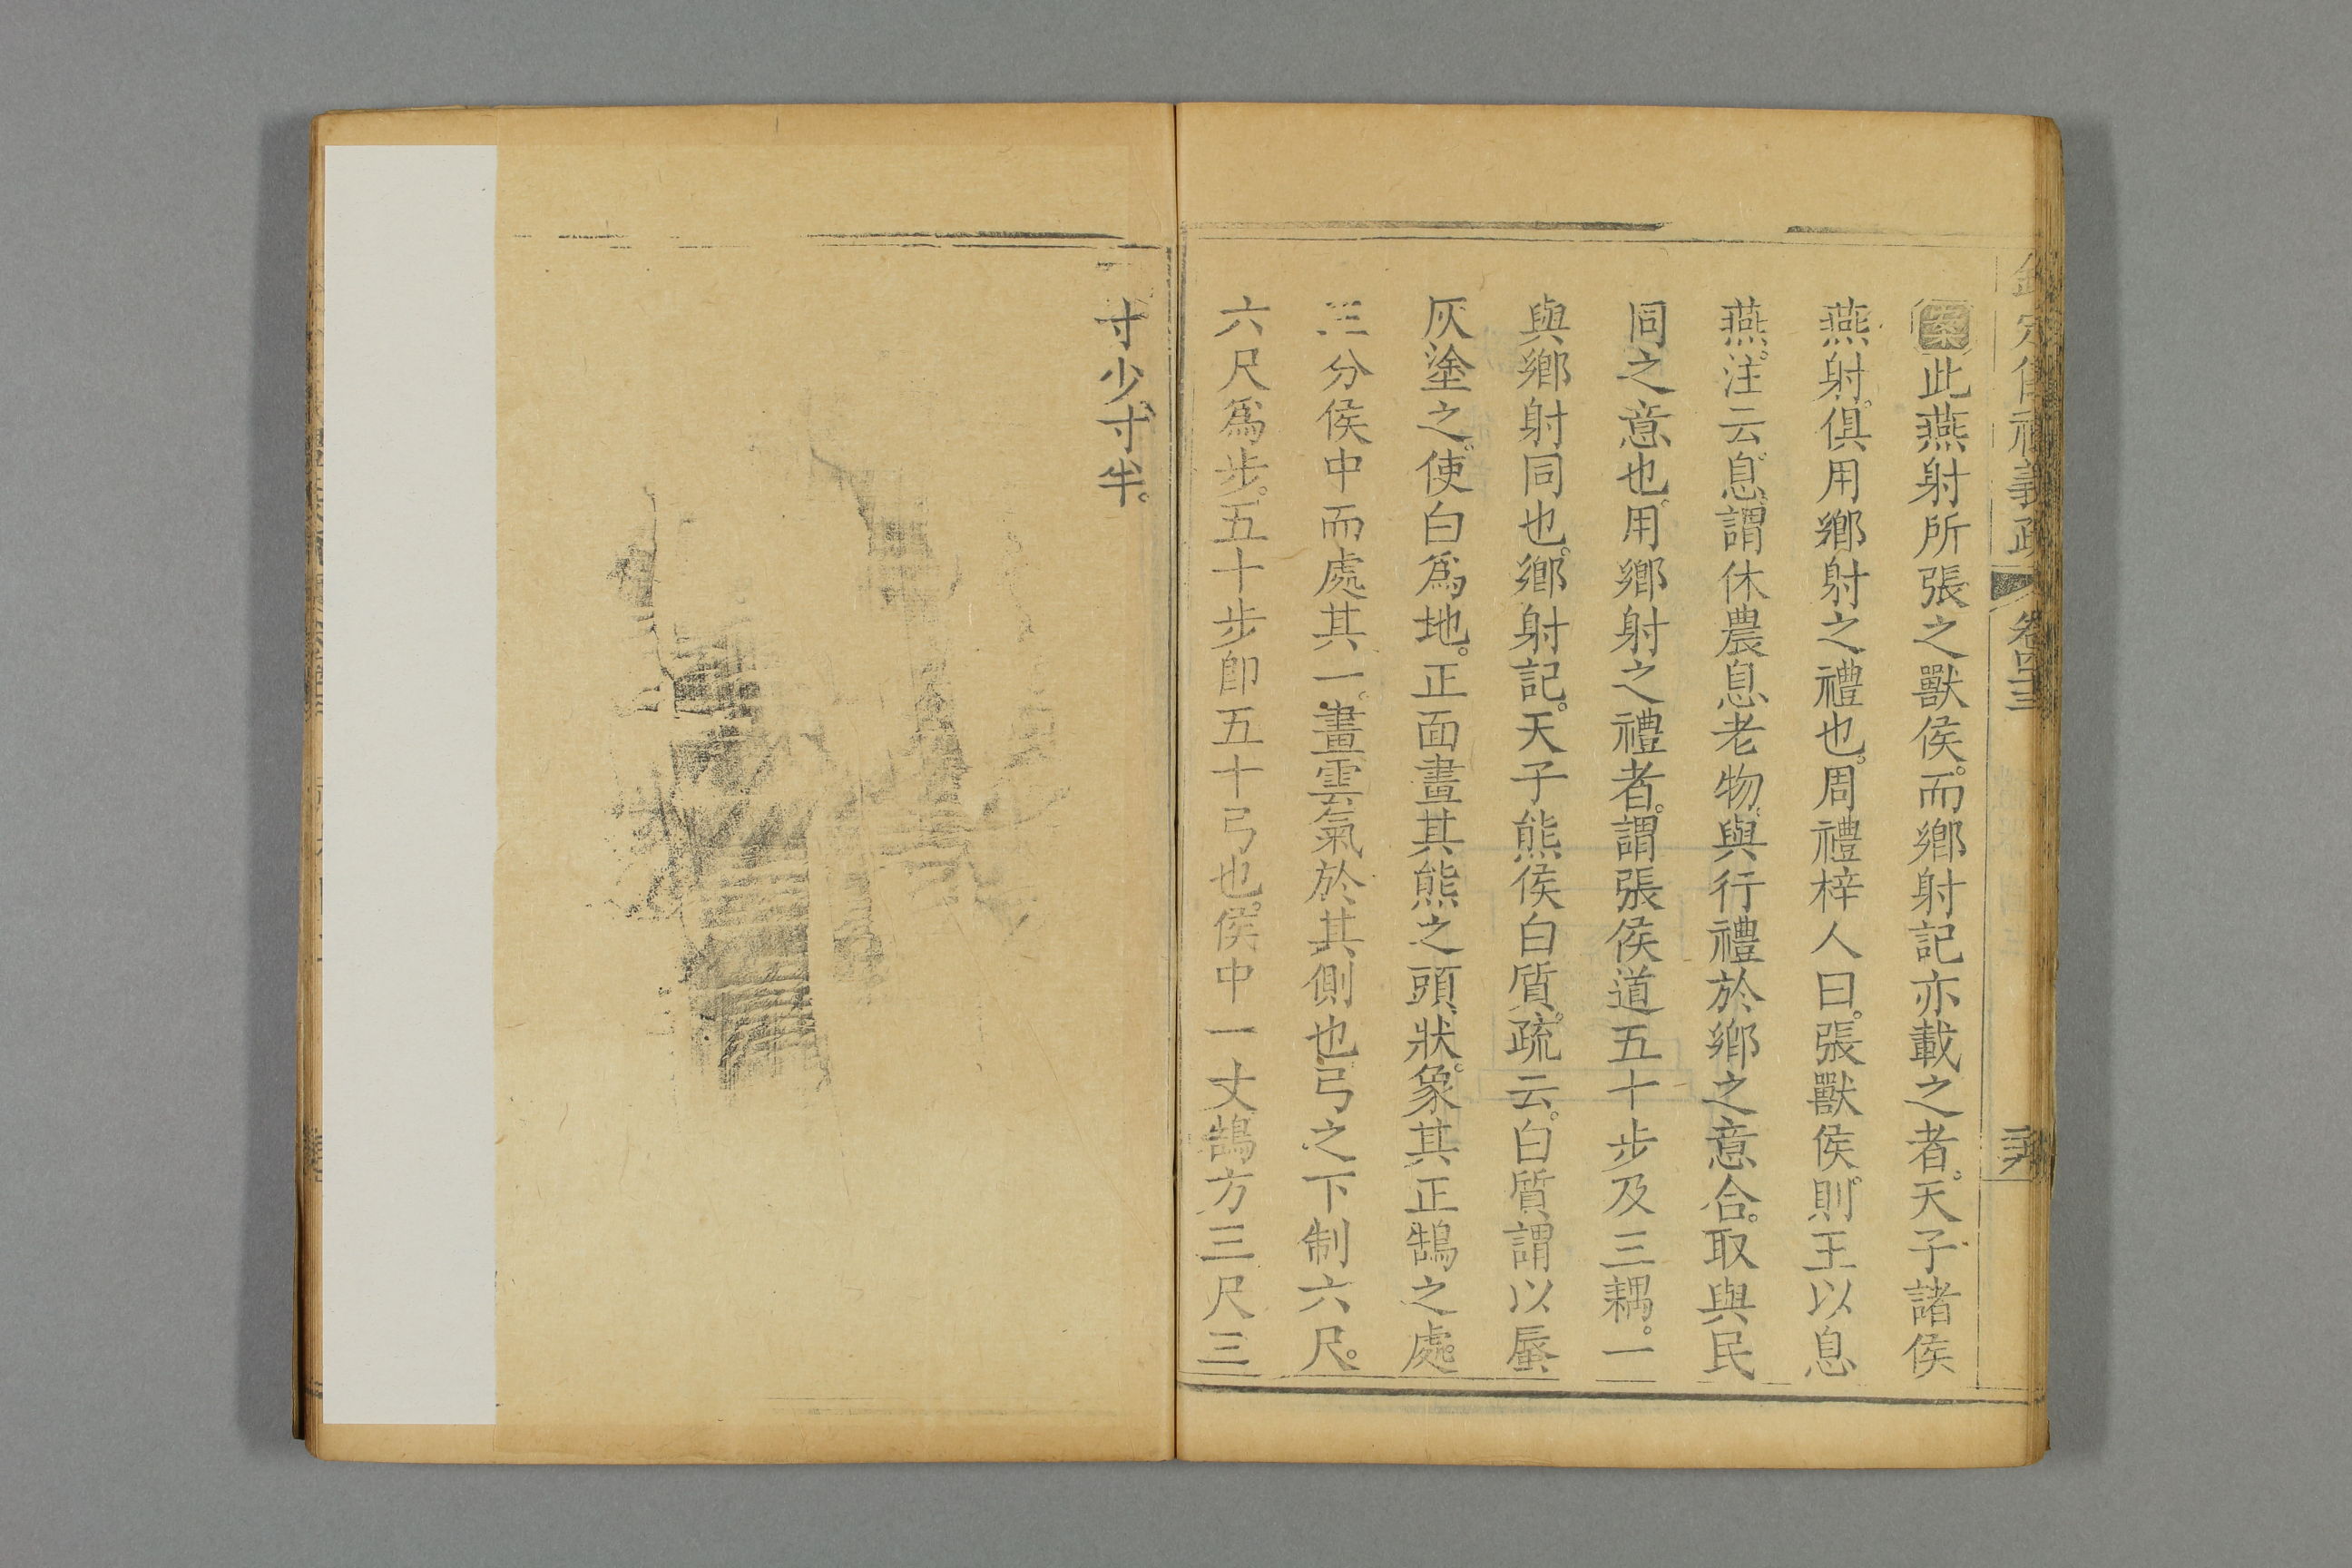 欽定儀禮義疏 卷四十三
案此燕射所張之獸侯。而鄉射記亦載之者。天子諸侯
燕射。俱用鄉射之禮也。周禮梓人曰。張獸侯。則王以息
燕。注云。息。謂休農息老物。與行禮於鄉之意合。取與民
同之意也。用鄉射之禮者。謂張侯道五十步及三耦。一
與鄉射同也。鄉射記。天子熊侯白質。疏云。白質謂以蜃
灰塗之。使白為地。正面畫其熊之頭狀。象其正鵠之處。
三分侯中而處其一。畫雲氣於其側也。弓之下制六尺。
六尺為步。五十步即五十弓也。侯中一丈。鵠方三尺三
寸少寸半。